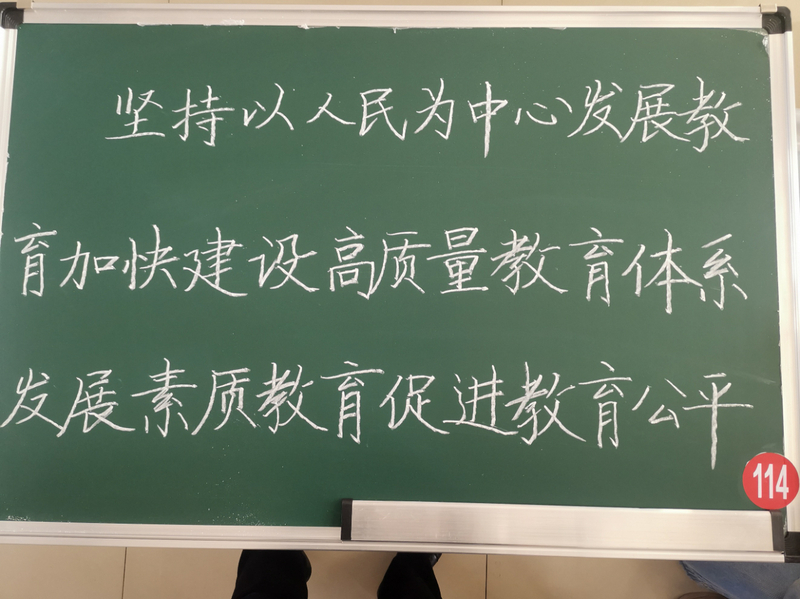 坚持以人民为中心发展教
育加快建设高质量教育体系
发展素质教育促进教育公平
114